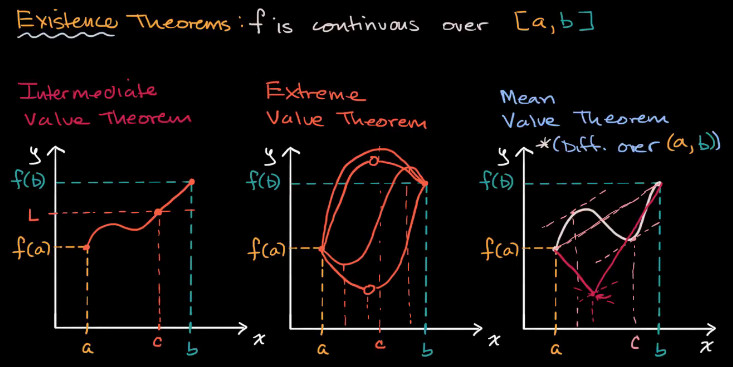 Existence Theorems: f is continuous over [a,b]
Intermediate
Value Theorem
y
f(b)
L
f(a)
a
c
b
x
Extreme
Value Theorem
y
f(b)
f(a)
a
c
b
x
Mean
Value Theorem
*(Diff. over (a,b))
y
f(b)
f(a)
a
c
b
x